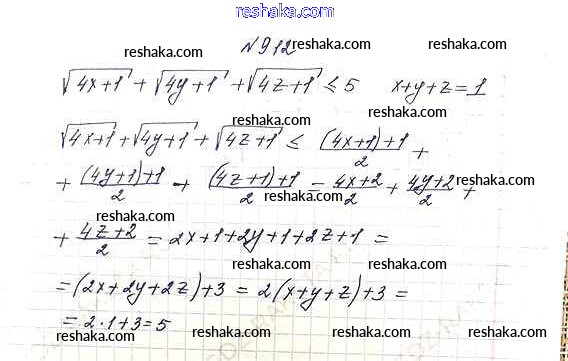 reshaka.com
reshaka.com
№912 reshaka.com reshaka.com
√4x+1 + √4y+1 + √4z+1 ≤ 5 x+y+z=1
reshaka.com reshaka.com
reshaka.com
√4x+1 + √4y+1 + √4z+1 ≤ (4x+1)+1/2 +
reshaka.com reshaka.com
+ (4y+1)+1/2 + (4z+1)+1/2 = 4x+2/2 + 4y+2/2 +
reshaka.com reshaka.com reshaka.com
+ 4z+2/2 = 2x+1+2y+1+2z+1 =
reshaka.com reshaka.com
=(2x+2y+2z)+3 = 2(x+y+z)+3 =
reshaka.com reshaka.com
= 2·1+3=5
reshaka.com reshaka.com reshaka.com